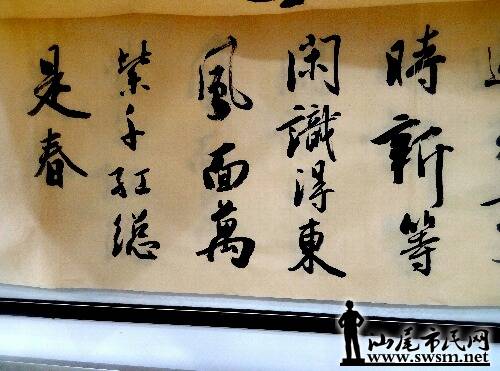 時新等
閑識得東
風面萬
紫千紅總
是春
汕尾市民网
www.swsm.net